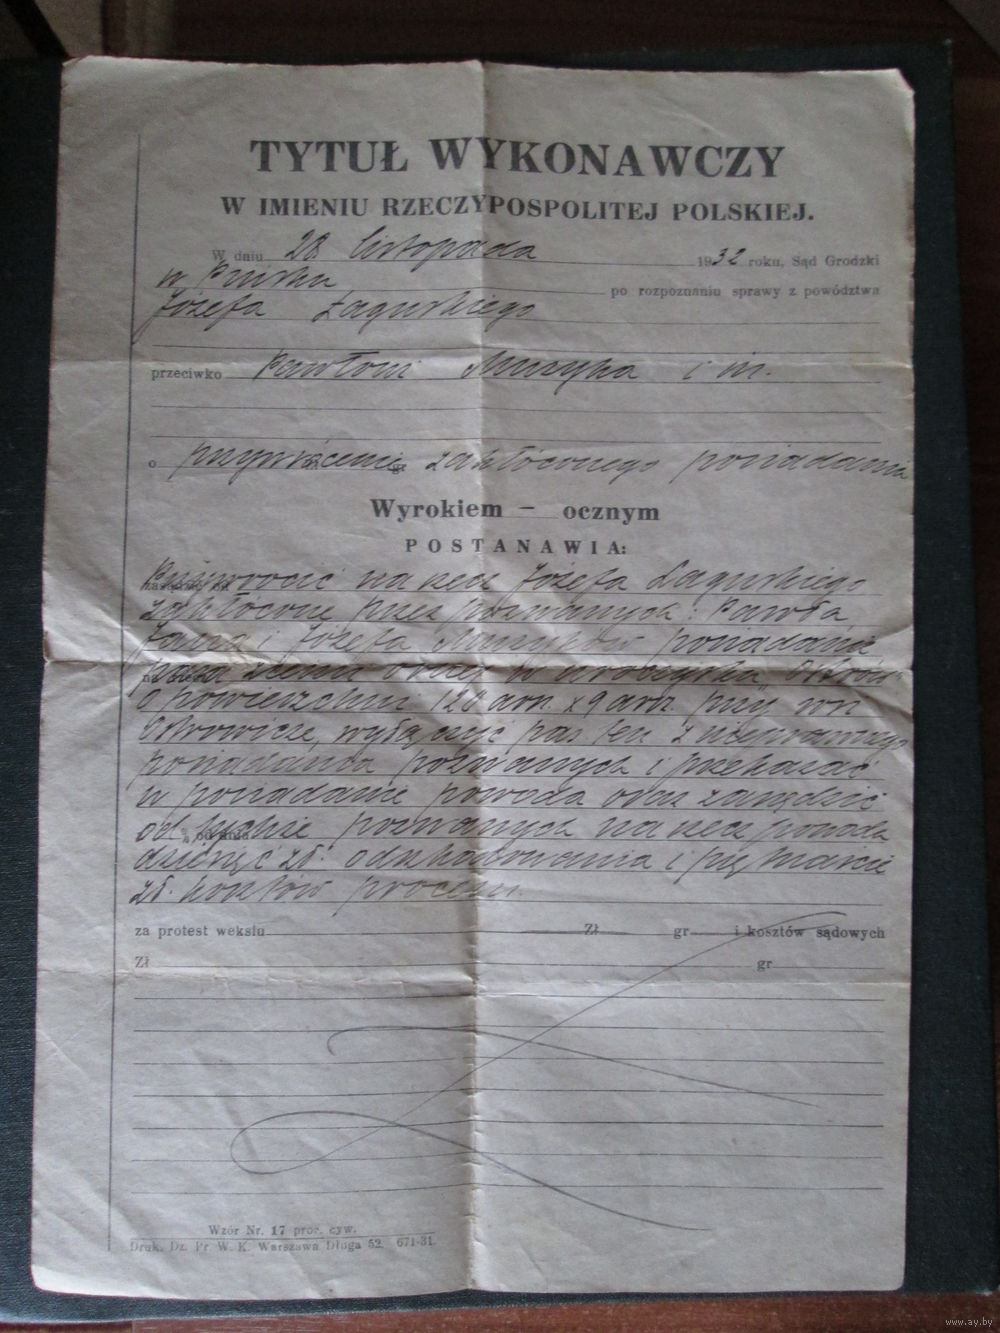 TYTUŁ WYKONAWCZY
W IMIENIU RZECZYPOSPOLITEJ POLSKIEJ.
W dniu 28 listopada 1932 roku, Sąd Grodzki
w Pińsku po rozpoznaniu sprawy z powództwa
Józefa Łagurskiego
przeciwko Pawłowi Muzyka i in.
o przywrócenie zakłóconego posiadania
Wyrokiem – ocznym
POSTANAWIA:
Przywrócić na rzecz Józefa Łagurskiego
zakłócone przez pozwanych: Pawła
Jana i Józefa posiadanie
ziemi w
o powierzchni 120 arn. x 9 arn. przy wsi
wyłączyć pas ten z nieprawnego
posiadania pozwanych i przekazać
w posiadanie powoda oraz zasądzić
od tychże pozwanych na rzecz powoda
% od dnia
dziesięć zł. odszkodowania i piętnaście
zł. kosztów procesu.
za protest wekslu Zł gr i kosztów sądowych
Zł gr
Wzór Nr. 17 proc. cyw.
Druk. Dz. Pr. W. K. Warszawa Długa 52. 671-31.
www.ay.by